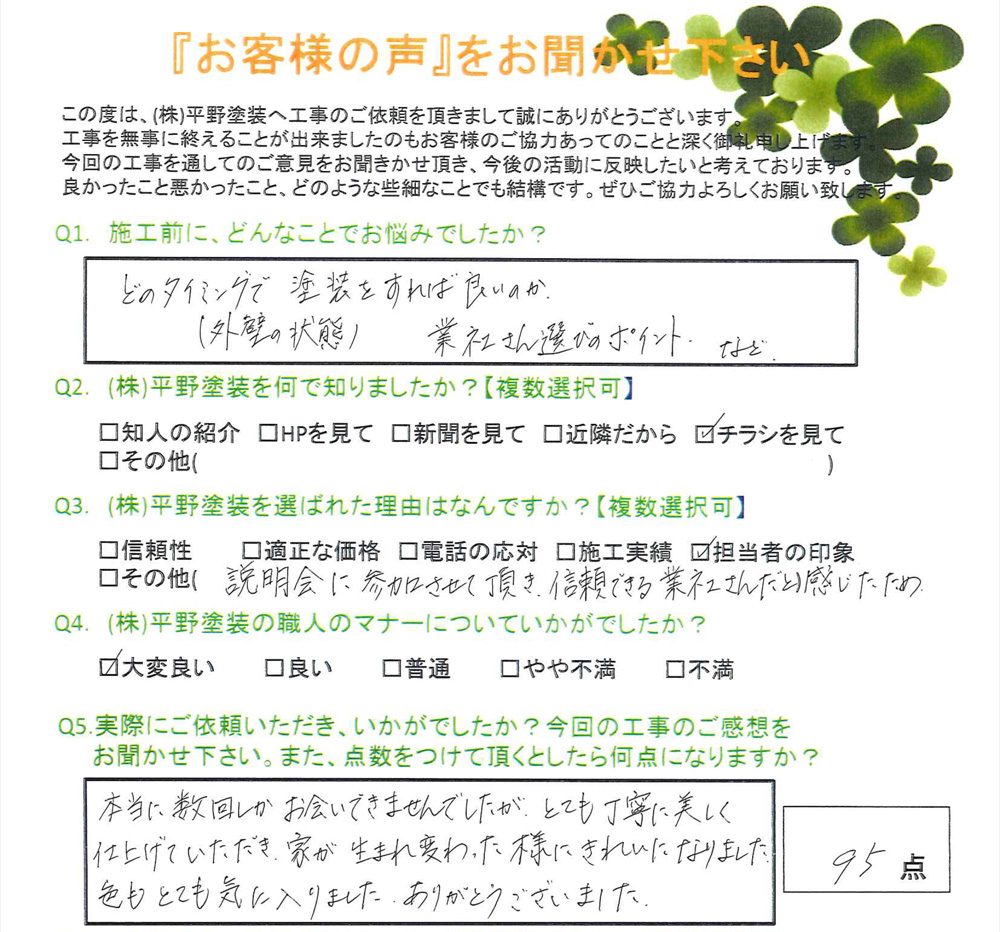 『お客様の声』をお聞かせ下さい
この度は、(株)平野塗装へ工事のご依頼を頂きまして誠にありがとうございます。
工事を無事に終えることが出来ましたのもお客様のご協力あってのことと深く御礼申し上げます。
今回の工事を通してのご意見をお聞きかせ頂き、今後の活動に反映したいと考えております。
良かったこと悪かったこと、どのような些細なことでも結構です。ぜひご協力よろしくお願い致します。
Q1. 施工前に、どんなことでお悩みでしたか？
どのタイミングで 塗装をすれば良いのか.
(外壁の状態) 業社さん選びのポイント. など.
Q2. (株)平野塗装を何で知りましたか？【複数選択可】
□知人の紹介 □HPを見て □新聞を見て □近隣だから ☑チラシを見て
□その他( )
Q3. (株)平野塗装を選ばれた理由はなんですか？【複数選択可】
□信頼性 □適正な価格 □電話の応対 □施工実績 ☑担当者の印象
□その他( 説明会に参加させて頂き、信頼できる業社さんだと感じたため.
Q4. (株)平野塗装の職人のマナーについていかがでしたか？
☑大変良い □良い □普通 □やや不満 □不満
Q5.実際にご依頼いただき、いかがでしたか？今回の工事のご感想を
お聞かせ下さい。また、点数をつけて頂くとしたら何点になりますか？
本当に数回しかお会いできませんでしたが、とても丁寧に美しく
仕上げていただき、家が生まれ変わった様にきれいになりました.
色もとても気に入りました.ありがとうございました.
95 点